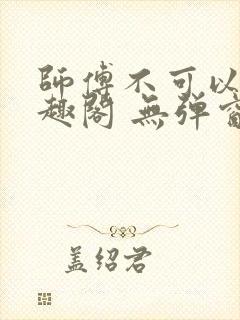 師傅不可以
趣閣 無弹窗
盖绍君